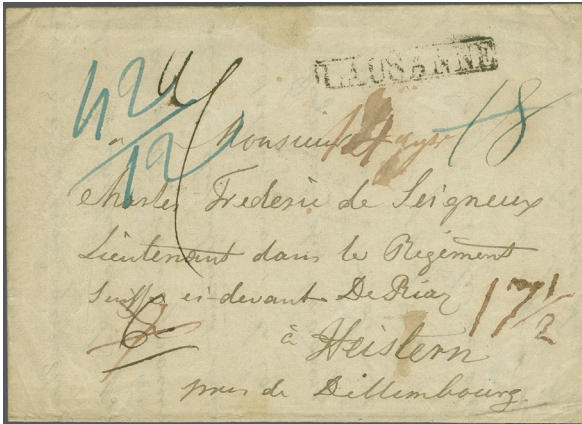 LAUSANNE
42
12
18
a Monsieur
Charles Frederic de Seigneux
Lieutenant dans le Regiment
Suisse ci devant De Riaz
17 1/2
6
à Heistern
pres de Dillembourg